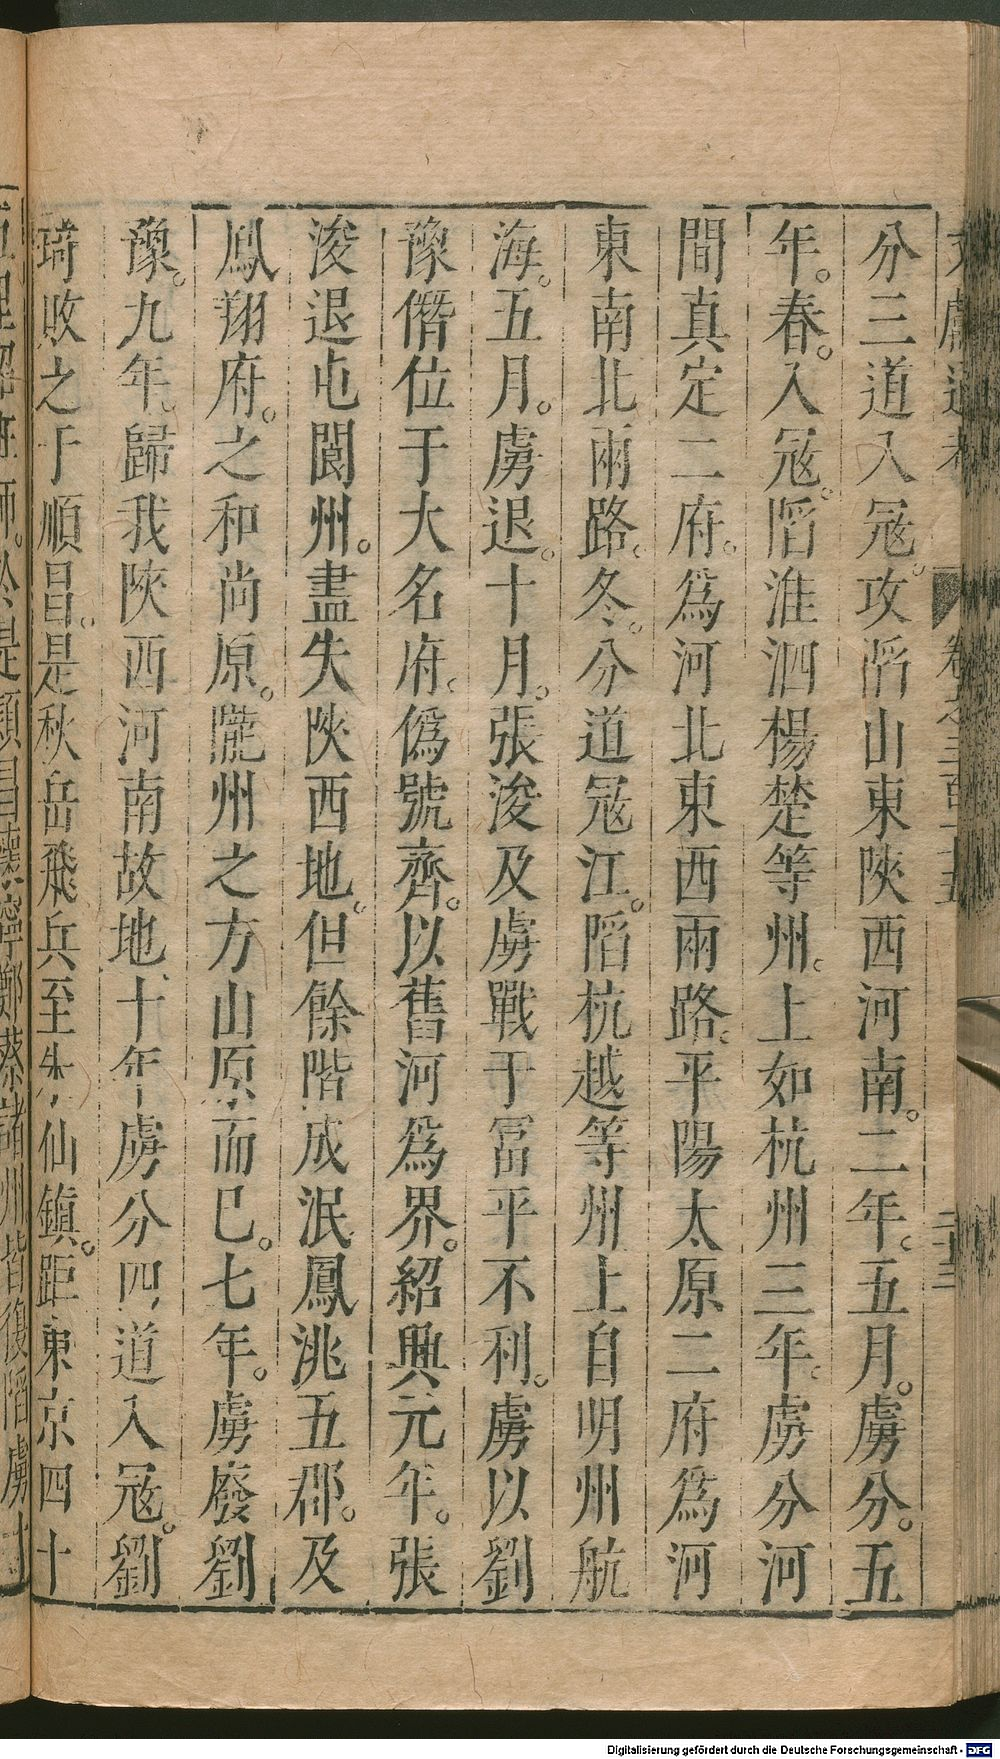 分三道入冦。攻䧟山東陜西河南。二年。五月。虜分。五
年。春。入冦。䧟淮泗楊楚等州。上如杭州三年。虜分河
間真定二府。爲河北東西兩路。平陽太原二府爲河
東南北兩路。冬。分道冦江。䧟杭越等州上自明州航
海。五月。虜退。十月。張浚及虜戰于冨平不利。虜以劉
豫僭位于大名府。僞號齊。以舊河爲界。紹興元年。張
浚退屯閬州。盡失陜西地。但餘階成泯鳳洮五郡。及
鳳翔府。之和尚原。隴州之方山原而巳。七年。虜廢劉
豫。九年。歸我陜西河南故地十年虜分四道入冦。劉
琦敗之于順昌。是秋岳飛兵至朱仙鎮。距東京四十
Digitalisierung gefördert durch die Deutsche Forschungsgemeinschaft - DFG